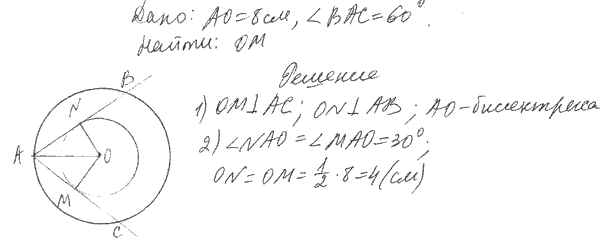 Дано: AO=8см, ∠BAC=60°.
Найти: OM
Решение
1) OM⊥AC; ON⊥AB; AO-биссектриса
2) ∠NAO=∠MAO=30°;
ON=OM=1/2·8=4(см)
B
N
A
O
M
C